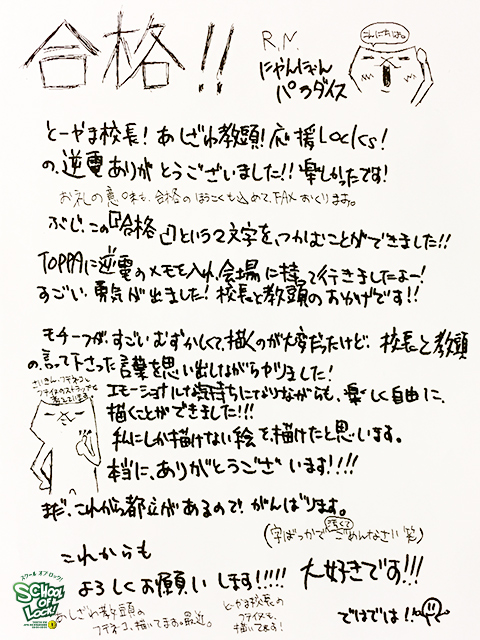 合格!!
R.N.
にゃんにゃん
パラダイス
こんにちは。
とーやま校長!あしざわ教頭!応援LOCKS!
の、逆電ありがとうございました!!楽しかったです!
お礼の意味も、合格のほうこくも込めて、FAXおくります。
ぶじ、この『「合格」』という2文字を、つかむことができました!!
TOPPAに逆電のメモを入れ、会場に持って行きましたよー!
すごい勇気が出ました!校長と教頭のおかげです!!
モチーフが、すごいむずかしくて、描くのが大変だったけど、校長と教頭
の、言って下さった言葉を思い出しながらやりました!
エモーショナルな気持ちになりながらも、楽しく自由に、
描くことができました!!!
私にしか描けない絵を描けたと思います。
本当に、ありがとうございます!!!!
まだ、これから都立があるので がんばります。
(字ばっかで ごめんなさい 笑)
これからも
よろしくお願いします!!!!!
大好きです!!!
あしざわ教頭の
フテネコ、描いてます。最近。
とーやま校長の
フテイも、
描いてます!
ではでは!!
スクール オブ ロック!
SCHOOL
OF
LOCK!